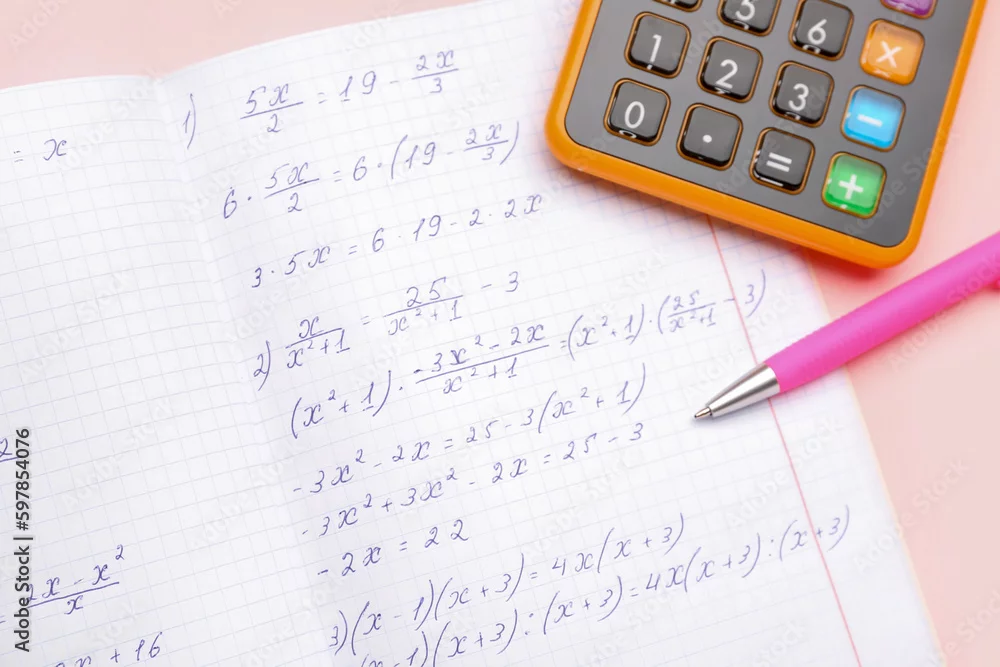 = x
2
2x - x²/x
x + 16
1) 5x/2 = 19 - 2x/3
6 · 5x/2 = 6 · (19 - 2x/3)
3 · 5x = 6 · 19 - 2 · 2x
2) x/x²+1 = 25/x²+1 - 3
(x²+1) · -3x²-2x/x²+1 = (x²+1) · (25/x²+1 - 3)
-3x² - 2x = 25 - 3(x²+1)
-3x² + 3x² - 2x = 25 - 3
-2x = 22
3) (x-1)(x+3) = 4x(x+3)
(x-1)(x+3) : (x+3) = 4x(x+3) : (x+3)
5 6 x
1 2 3 -
0 . = +
Adobe Stock | #597854076